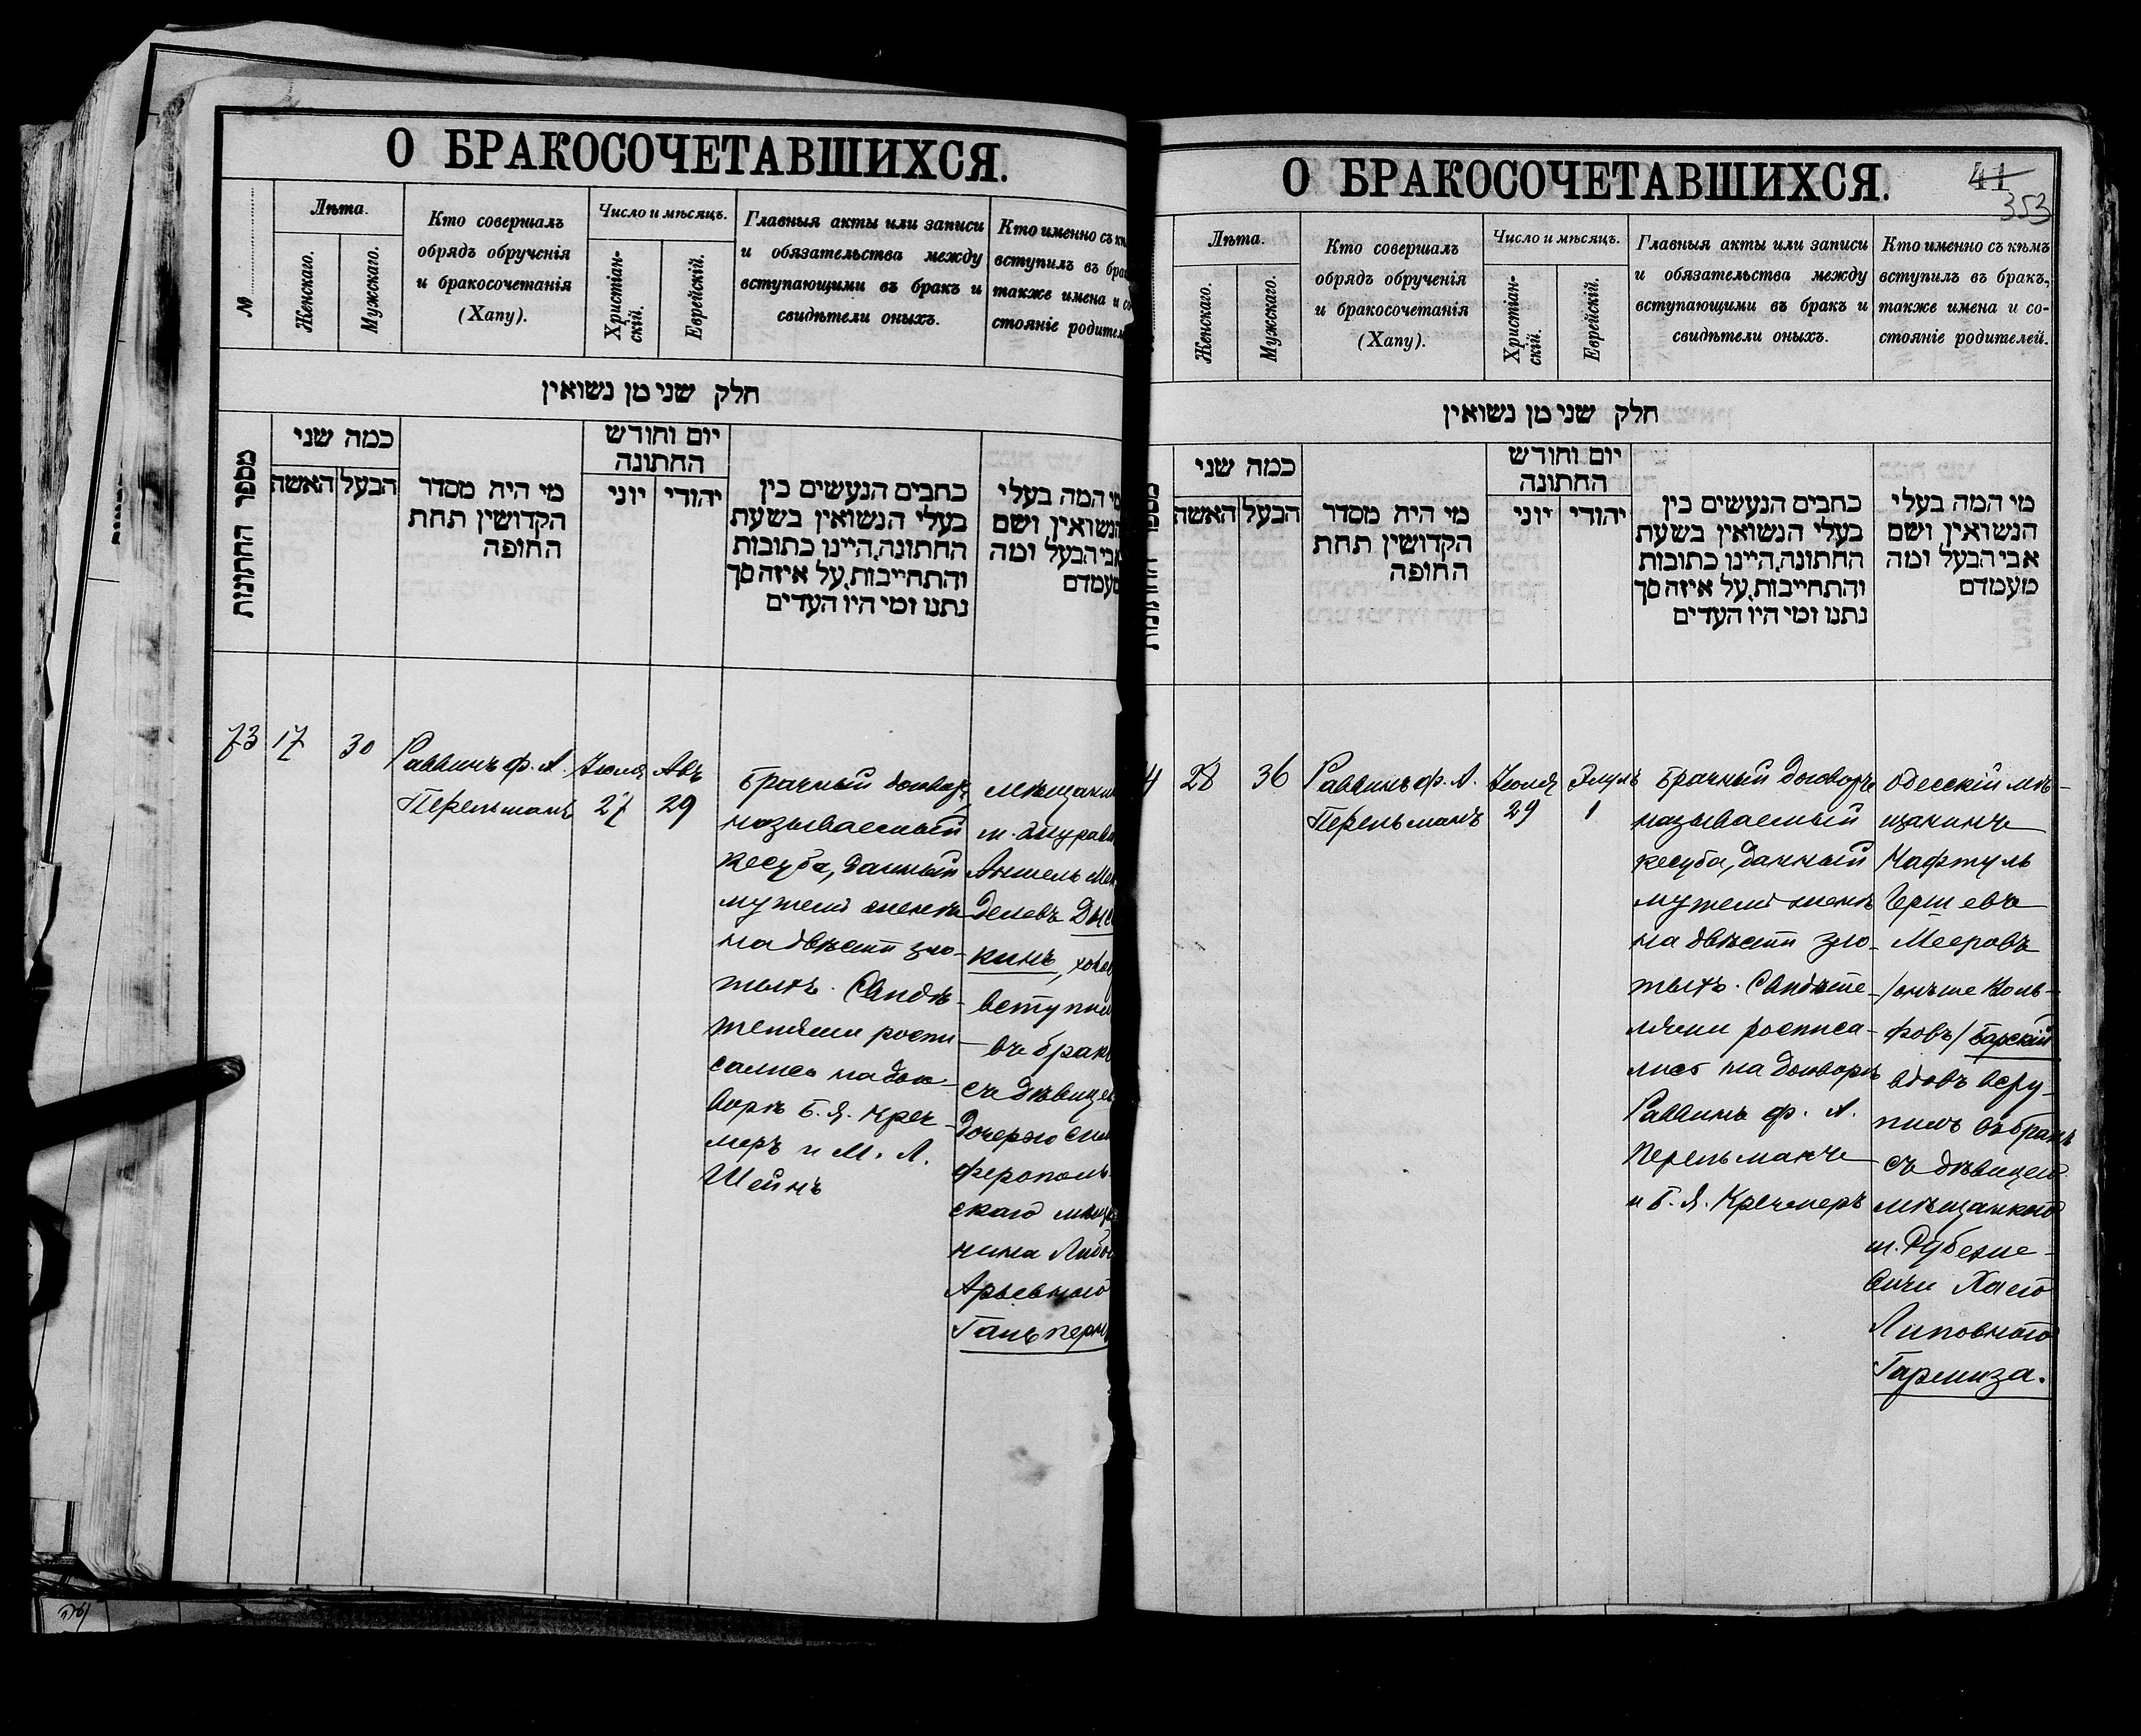 О БРАКОСОЧЕТАВШИХСЯ.
№
Лѣта.
Женскаго.
Мужскаго.
Кто совершалъ
обрядъ обрученія
и бракосочетанія
(Хапу).
Число и мѣсяцъ.
Христіан-
скій.
Еврейскій.
Главныя акты или записи
и обязательства между
вступающими въ бракъ и
свидѣтели оныхъ.
Кто именно съ
вступилъ въ
также имена и со
стояніе
חלק שני מן נשואין
מספר החתונות
כמה שני
האשה
הבעל
מי היה מסדר
הקדושין תחת
החופה
יום וחודש
החתונה
יוני
יהודי
כתבים הנעשים בין
בעלי הנשואין בשעת
החתונה, היינו כתובות
והתחייבות, על איזה סך
נתנו ומי היו העדים
מי המה בעלי
הנשואין ושם
אבי הבעל ומה
מעמדם
73
17
30
Раввинъ ф. А.
Перельманъ
Іюля
27
Авъ
29
Брачный договоръ
называемый
кесуба, данный
мужемъ женѣ
на двѣсти зло-
тыхъ. Свидѣ-
телями роспи-
сались на дого-
ворѣ Б. Я. Креч-
меръ и М. Л.
Шейнъ
м.
Аншель Мен
делевъ
кинъ,
вступил
въ бракъ
съ дѣвицею
дочерью Сим
ферополь-
скаго мѣща
нина
Арьевною
Гальперн
О БРАКОСОЧЕТАВШИХСЯ.
41
353
Лѣта.
Женскаго.
Мужскаго.
Кто совершалъ
обрядъ обрученія
и бракосочетанія
(Хапу).
Число и мѣсяцъ.
Христіан-
скій.
Еврейскій.
Главныя акты или записи
и обязательства между
вступающими въ бракъ и
свидѣтели оныхъ.
Кто именно съ кѣмъ
вступилъ въ бракъ,
также имена и со-
стояніе родителей.
חלק שני מן נשואין
כמה שני
האשה
הבעל
מי היה מסדר
הקדושין תחת
החופה
יום וחודש
החתונה
יוני
יהודי
כתבים הנעשים בין
בעלי הנשואין בשעת
החתונה, היינו כתובות
והתחייבות, על איזה סך
נתנו ומי היו העדים
מי המה בעלי
הנשואין ושם
אבי הבעל ומה
מעמדם
4
28
36
Раввинъ ф. А.
Перельманъ
Іюля
29
Элулъ
1
Брачный договоръ
называемый
кесуба, данный
мужемъ женѣ
на двѣсти зло-
тыхъ. Свидѣте-
лями росписа-
лись на договорѣ
Раввинъ ф. А.
Перельманъ
и Б. Я. Кречмеръ
Одесскій мѣ-
щанинъ
Нафтуль
Гершевъ
Мееровъ
/онъ же Воль-
фовъ/ Барскій
вдовъ всту-
пилъ въ бракъ
съ дѣвицею
мѣщанкою
м. Рубеже-
вичи Хаею
Липовною
Гармиза.